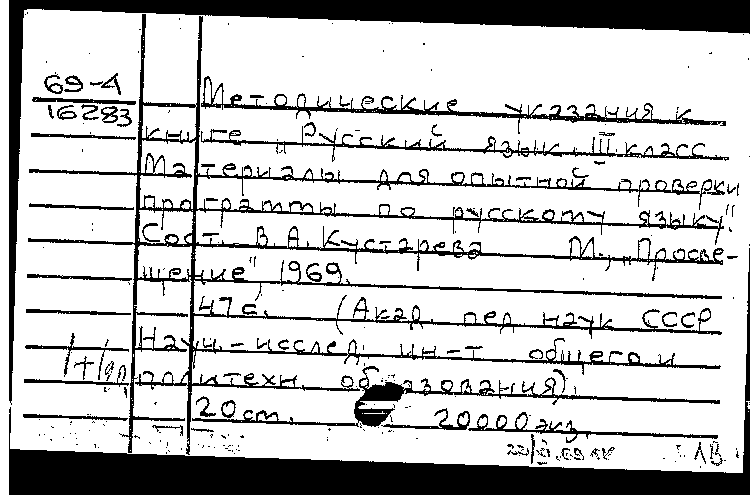 69-4
16283
Методические указания к
книге „Русский язык. III класс
Материалы для опытной проверки
программы по русскому языку".
Сост. В. А. Кустарева М., „Просве-
щение", 1969.
47с. (Акад. пед наук СССР
Науч.-исслед. ин-т общего и
политехн. образования).
20 см. 20000 экз.
ЛВ